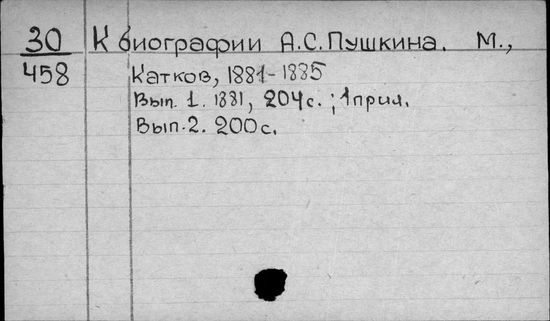 30 К биографии А.С.Пушкина. М.,
458 Катков, 1881-1885
Вып. 1. 1881, 204с.; 1прил.
Вып.2. 200с.